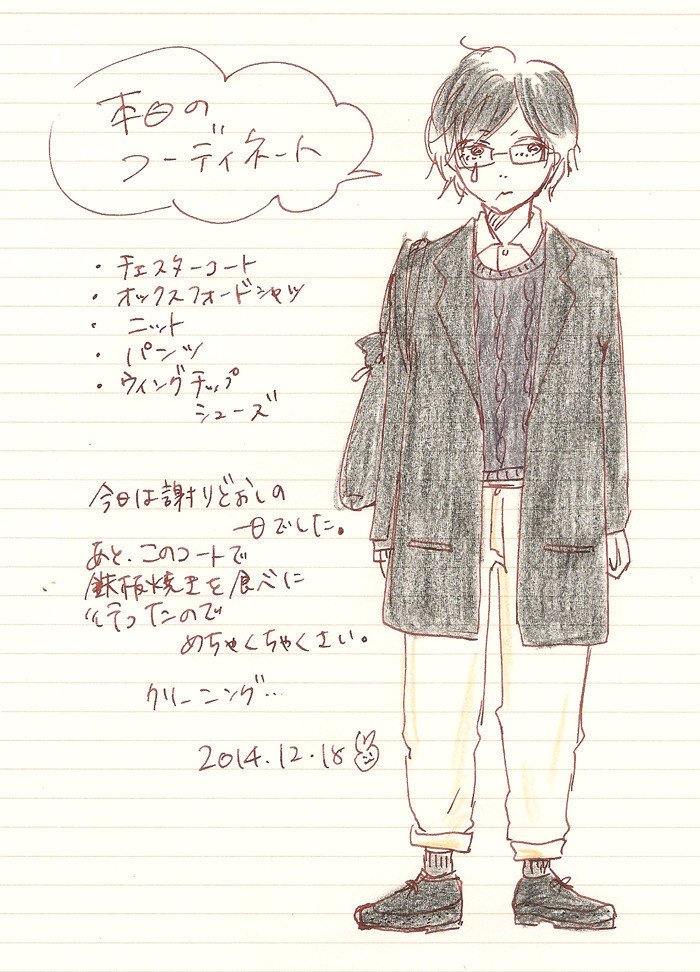 本日の
コーディネート
・チェスターコート
・オックスフォードシャツ
・ニット
・パンツ
・ウィングチップ
シューズ
今日は謝りどおしの
一日でした。
あと、このコートで
鉄板焼きを食べに
行ったので
めちゃくちゃくさい。
クリーニング…
2014.12.18